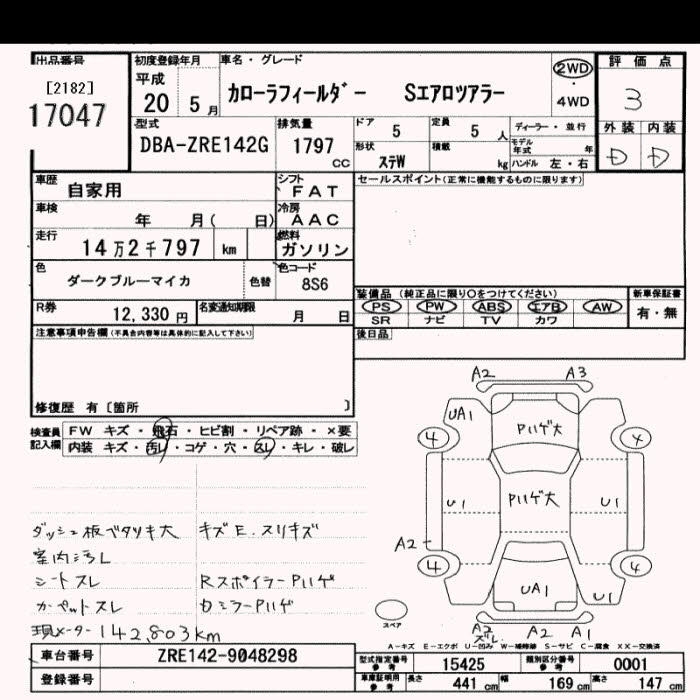 出品番号 初度登録年月 車名・グレード 評価点
[2182] 平成 2WD
17047 20 5月 カローラフィールダー Sエアロツアラー ・ 4WD 3
型式 排気量 ドア 5 定員 5人 ディーラー・並行 外装 内装
DBA-ZRE142G 1797 CC 形状 ステW 積載 kg モデル年式 年 ハンドル 左・右 D D
車歴 自家用 シフト FAT セールスポイント(正常に機能するものに限ります)
車検 年 月( 日) 冷房 AAC
走行 14万2千797 km 燃料 ガソリン
色 ダークブルーマイカ 色替 色コード 8S6
装備品 (純正品に限り○をつけてください) 新車保証書
R券 12,330円 名変通知期限 月 日 PS PW ABS エアB AW 有・無
SR ナビ TV カワ
注意事項申告欄(不具合内容等は具体的に記入して下さい) 後日品
修復歴 有〔箇所 〕
検査員記入欄 FW キズ・飛石・ヒビ割・リペア跡・×要
内装 キズ・汚レ・コゲ・穴・スレ・キレ・破レ
A2 A3
UA1 Pハゲ大
4 ×
U1 Pハゲ大 U1
A2
4 4
UA1 U1
スペア
A2 ズレ A2 A1
ダッシュ板ベタツキ大 キズE.スリキズ
室内汚レ
シートスレ RスポイラーPハゲ
カーペットスレ
現メーター142,803km
A-キズ E-エクボ U-凹み W-補修跡 S-サビ C-腐食 XX-交換済
車台番号 ZRE142-9048298 型式指定番号 参考 15425 類別区分番号 参考 0001
登録番号 車庫証明用 参考 長さ 441cm 幅 169cm 高さ 147cm